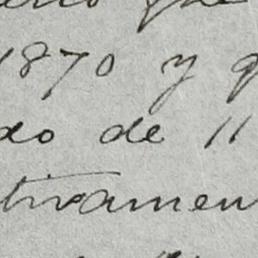 que
1870 y q
do de 11
tivamen